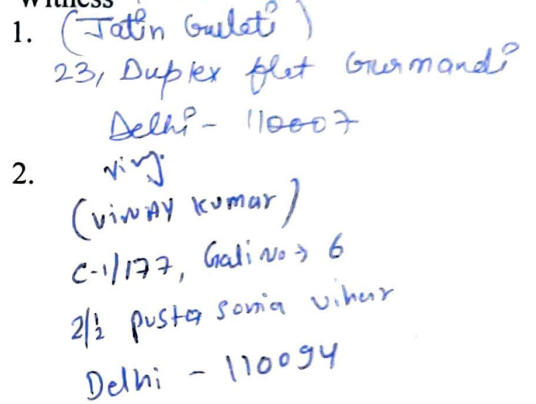 Witness
1. (Jatin Gulati)
23, Duplex flat Gurmandi
Delhi - 110007
2.
(VINAY Kumar)
C-1/177, Gali No → 6
2/½ pusta sonia vihar
Delhi - 110094